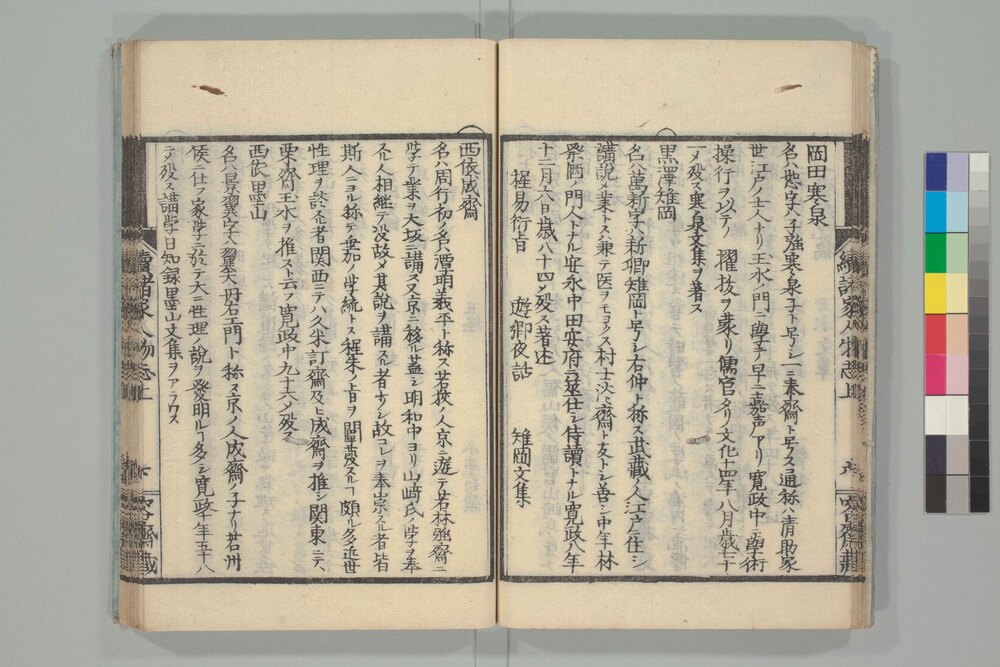 岡田寒泉
名ハ恕字ハ子強寒泉子ト号シ一ニ泰齋ト号ス通称ハ清助家
世江戸ノ士人ナリ玉水ノ門ニ學テ早ニ嘉声アリ寛政中ニ學術
操行ヲ以テ擢抜ヲ蒙リ儒官タリ文化十四年八月歳七十
一〆殁ス寒泉文集ヲ著ス
黒澤雉岡
名ハ萬新字ハ新卿雉岡ト号シ右仲ト称ス武蔵ノ人江戸ニ住シ
講説ヲ業トス兼テ医ヲモヨクス村士淡齋ト友トシ善シ中年林
祭酒ノ門人トナル安永中田安府ニ筮仕シ侍讀トナル寛政八年
十二月六日歳八十四〆殁ス著述
程易衍旨 遊郷夜話 雉岡文集
西依成齋
名ハ周行初ノ名ハ潭明義平ト称ス若狹ノ人京ニ遊テ若林強齋ニ
学テ業ヲ大坂ニ講ス又京ニ移ル蓋シ明和中ヨリ山﨑氏ノ学ヲ奉
スル人相継テ没故〆其説ヲ講スル者少シ故コレヲ奉崇スル者皆
斯人ニヨル称テ垂加ノ学統トス程朱ノ旨ヲ闡發スルヿ頗ル多近世
性理ヲ談スル者関西ニテハ久米訂齋及ヒ成齋ヲ推シ関東ニテハ
栗齋玉水ヲ推スト云フ寛政中九十六ノ殁ス
西依墨山
名ハ景翼字ハ翼夫丹右エ門ト称ス京ノ人成齋ノ子ナリ若州
侯ニ仕フ家学ニ於テ大ニ性理ノ説ヲ發明スルヿ多シ寛政十年五十八
ニ〆殁ス講学日知録墨山文集ヲアラワス
續諸家人物志上
七